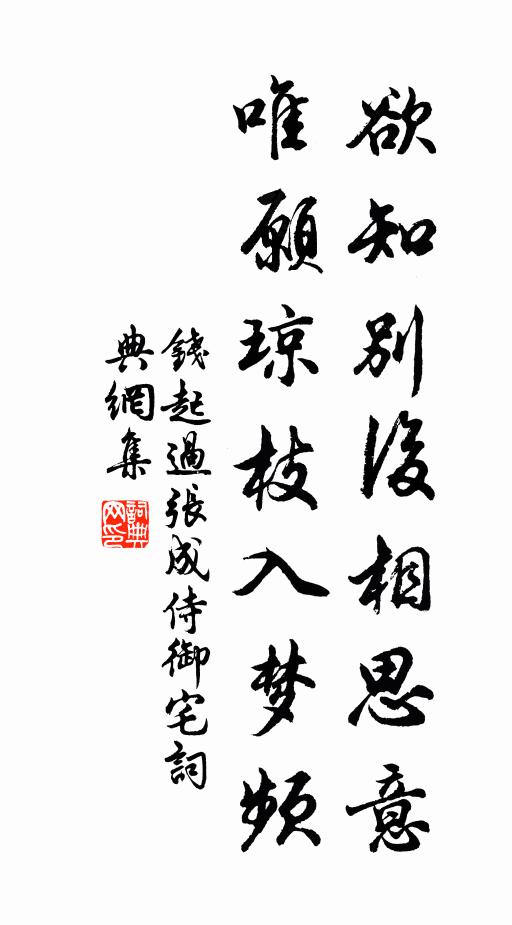 欲知别後相思意
唯願琼枝入梦频
錢起過張成侍御宅詞
典網集
詞典网印